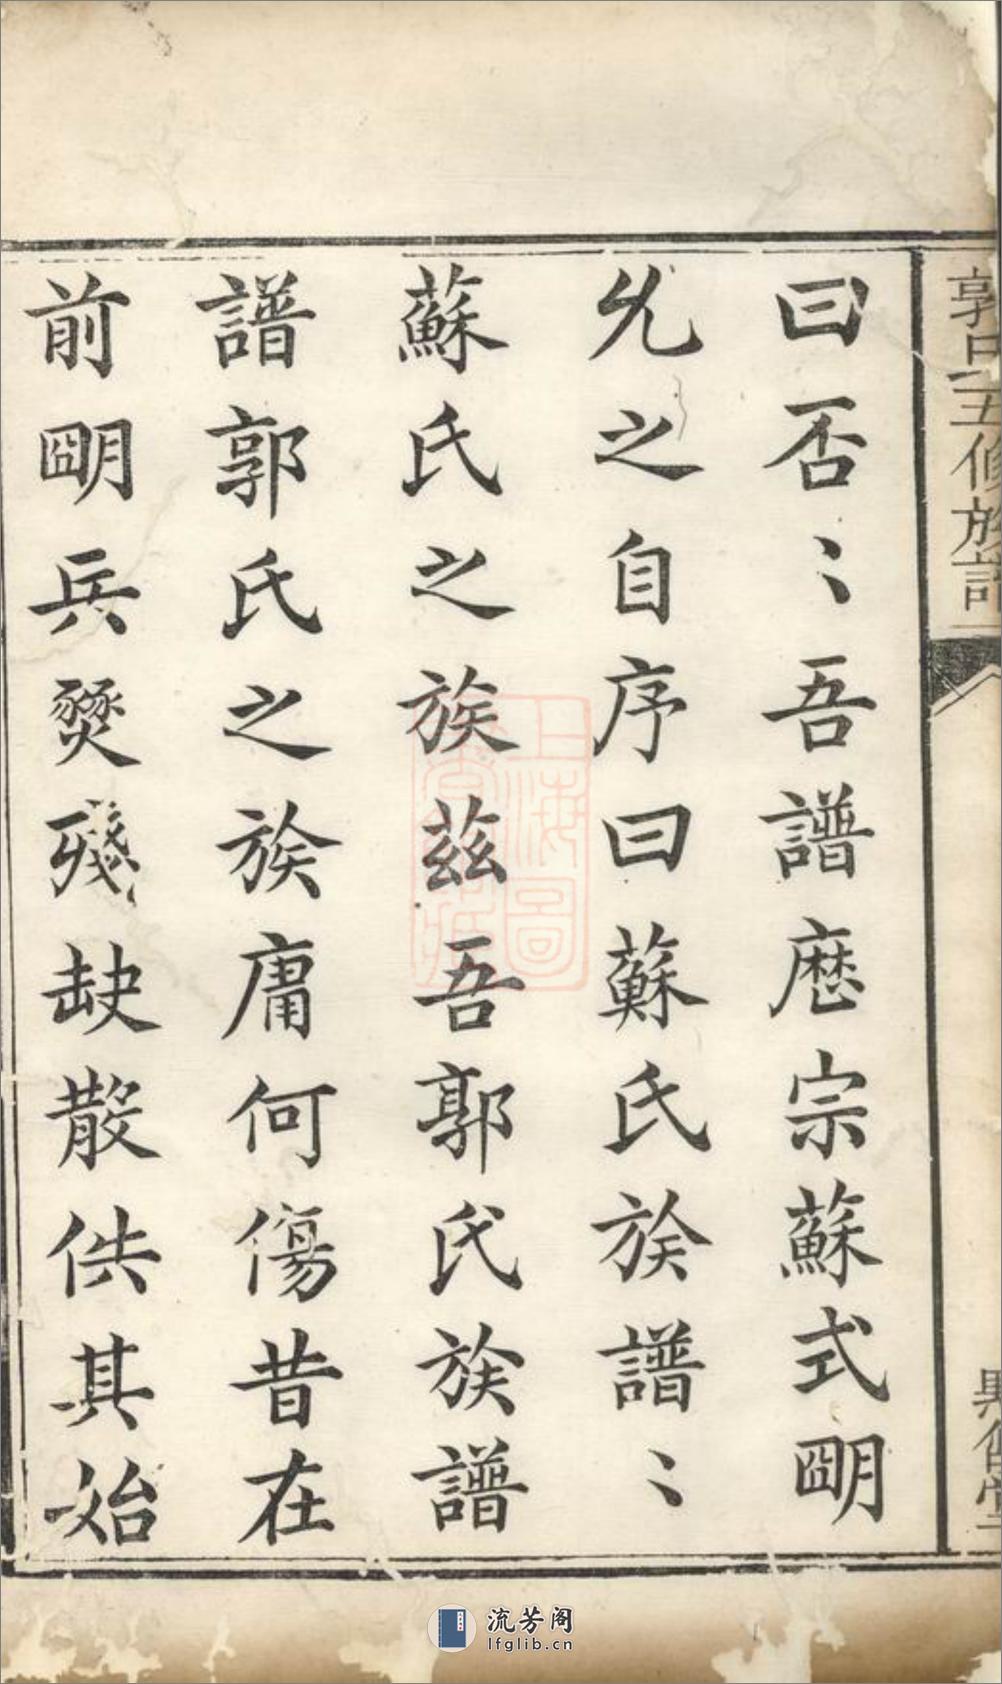 曰否〻吾譜厯宗蘇式明
允之自序曰蘇氏族譜〻
蘇氏之族兹吾郭氏族譜
譜郭氏之族庸何傷昔在
前明兵燹殘缺散佚其始
郭氏五修族譜
上海圖
流芳阁
lfglib.cn